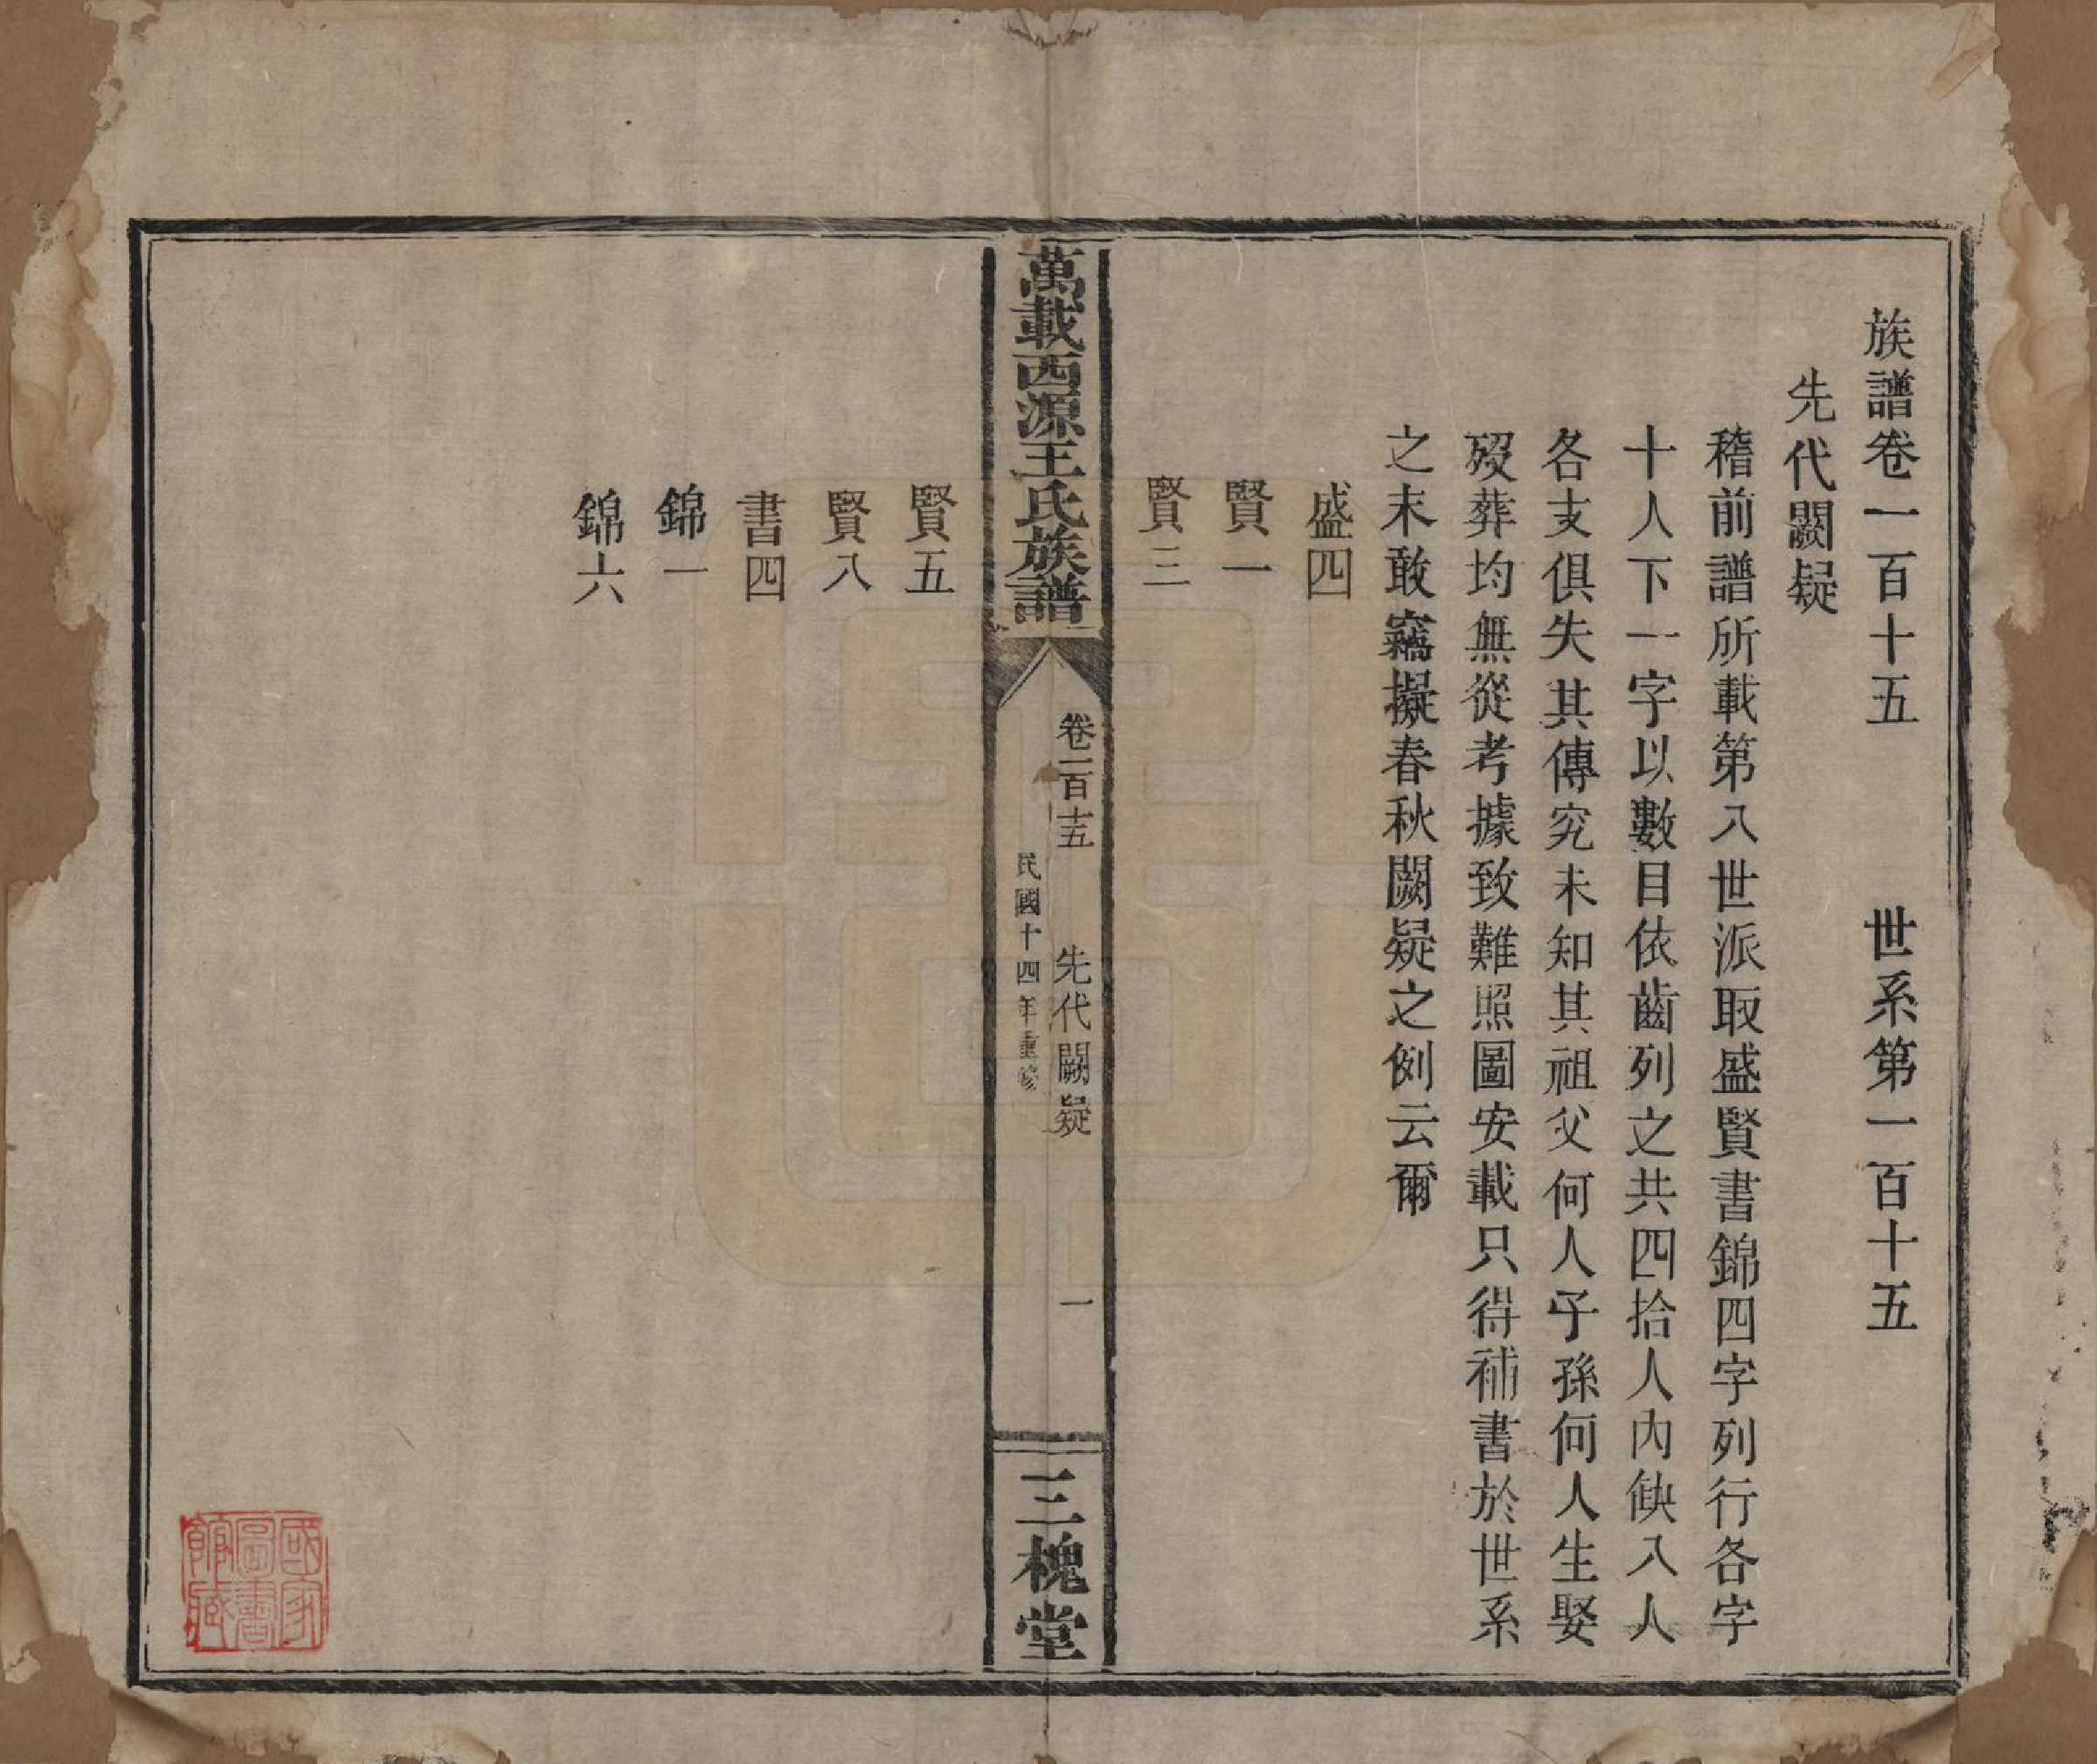 族譜卷一百十五　世系第一百十五
先代闕疑
稽前譜所載第八世派取盛賢書錦四字列行各字
十人下一字以數目依齒列之共四拾人內缺八人
各支俱失其傳究未知其祖父何人子孫何人生娶
歿葬均無從考據致難照圖安載只得補書於世系
之末敢竊擬春秋闕疑之例云爾
盛四
賢一
賢三
萬載西源王氏族譜
卷一百十五　先代闕疑　一
民國十四年重修
三槐堂
賢五
賢八
書四
錦一
錦六
國家圖書館藏